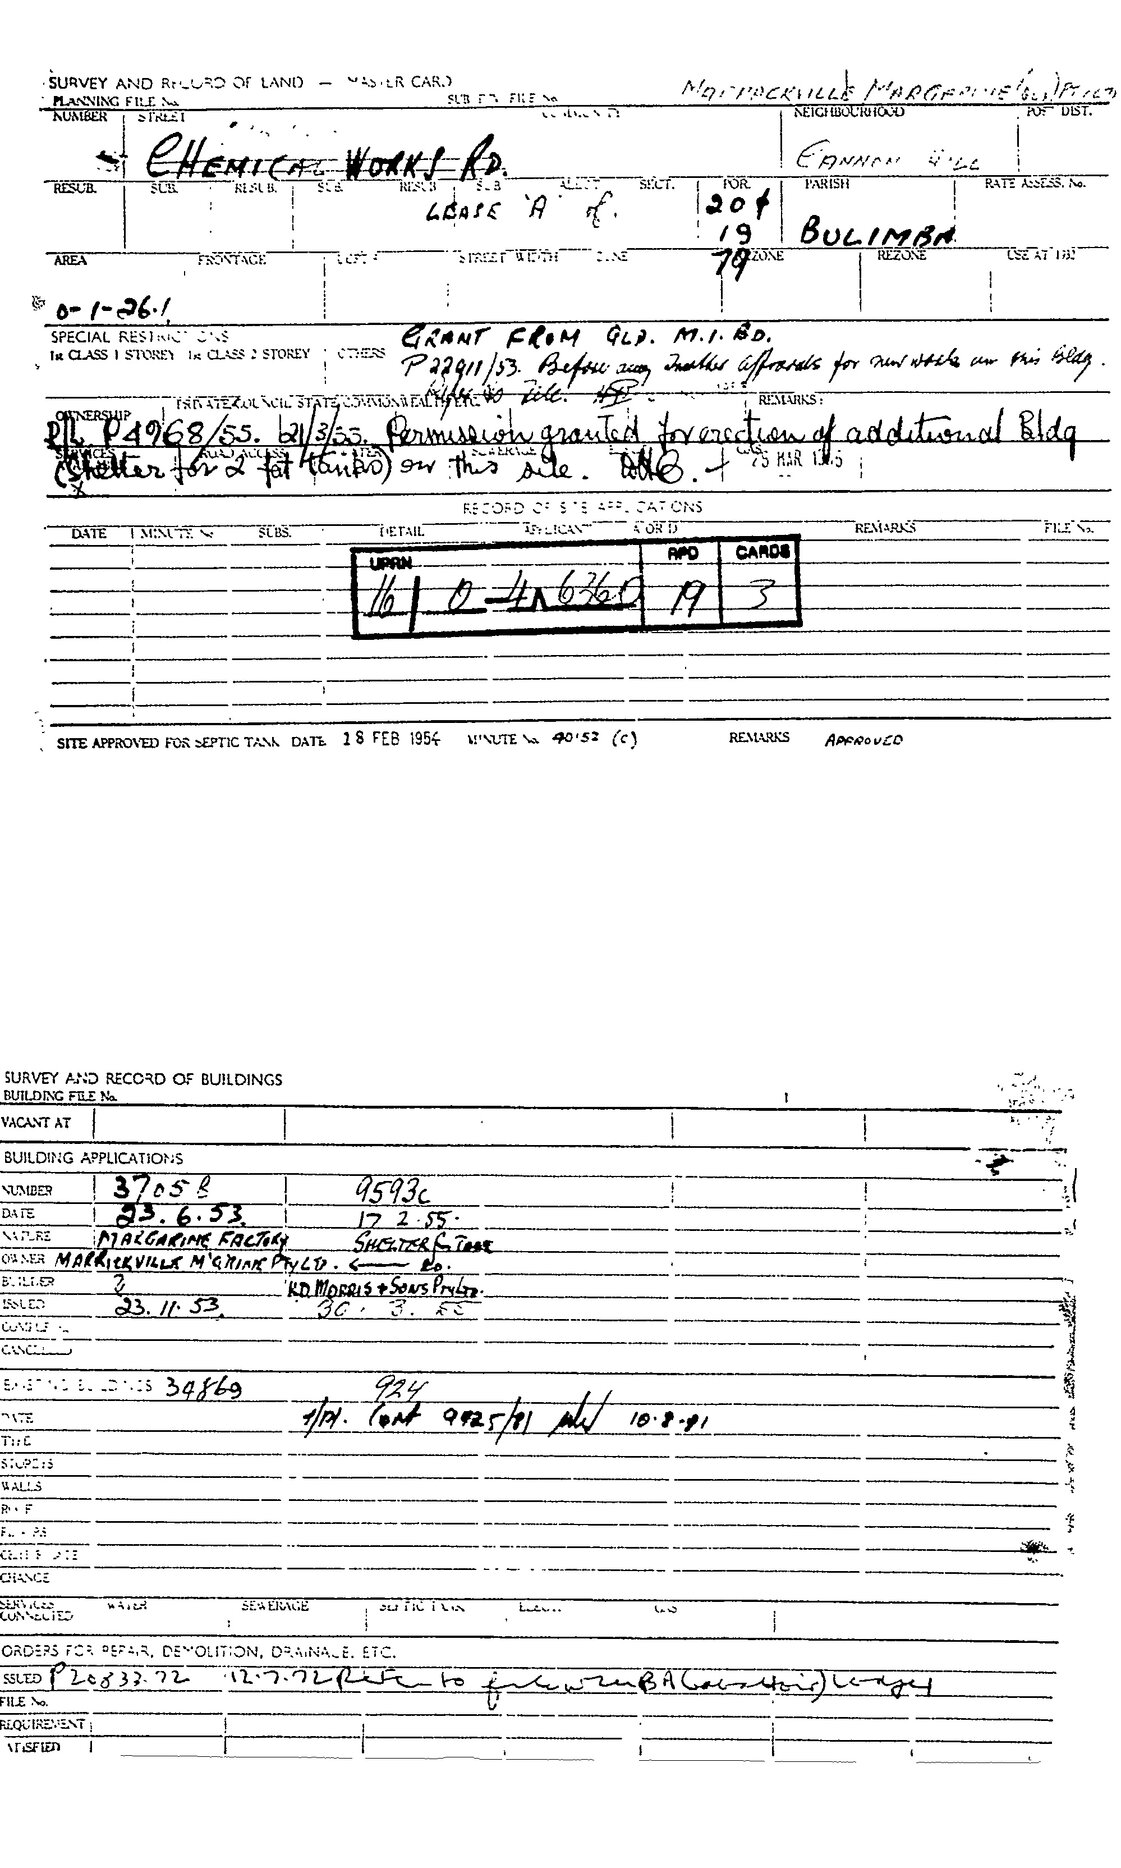 SURVEY AND RECORD OF LAND — MASTER CARD
PLANNING FILE No. SUB-DIV. FILE No. MARGARINE PTY LTD
NUMBER STREET NEIGHBOURHOOD POST DIST.
CHEMICAL WORKS RD. CANNON HILL
RESUB. SUB. RESUB. SUB. RESUB SUB ALLOT SECT. POR. PARISH RATE ASSESS. No.
LEASE 'A' of. 20 &
19 BULIMBA
79
AREA FRONTAGE STREET WIDTH ZONE REZONE REZONE
0-1-26.1
SPECIAL RESTRICTIONS GRANT FROM QLD. M.I. BD.
1st CLASS 1 STOREY 1st CLASS 2 STOREY OTHERS P22911/53. Before any further approvals for new works on this bldg.
Refer to File.
OWNERSHIP PRIVATE COUNCIL STATE COMMONWEALTH ETC. REMARKS:
P4968/55. 21/3/55. Permission granted for erection of additional Bldg
SERVICES ROAD ACCESS WATER SEWERAGE
(Shelter for 2 fat tanks) on this site. 25 MAR
RECORD OF SITE APPLICATIONS
DATE MINUTE No SUBS. DETAIL APPLICANT A OR D REMARKS FILE No.
UPRN RPD CARDS
16 0-4 6360 19 3
SITE APPROVED FOR SEPTIC TANK DATE 18 FEB 1954 MINUTE No. 4052 (C) REMARKS APPROVED
SURVEY AND RECORD OF BUILDINGS
BUILDING FILE No.
VACANT AT
BUILDING APPLICATIONS
NUMBER 3705B 9593c
DATE 23.6.53. 17 2.55.
NATURE MARGARINE FACTORY SHELTER
OWNER MARRICKVILLE M'GRINE PTY LTD. DO.
BUILDER ? K.D MORRIS + SONS PTY LTD.
ISSUED 23.11.53. 30. 3. 55
CANCELLED
EXISTING BUILDINGS 34869 924
DATE Cont 9925/81 10.8.81
TYPE
STOREYS
WALLS
ROOF
FLOORS
CERTIFICATE
CHANGE
SERVICES CONNECTED WATER SEWERAGE SEPTIC TANK ELECT. GAS
ORDERS FOR REPAIR, DEMOLITION, DRAINAGE, ETC.
ISSUED P20833.72 12.7.72 Refer to
FILE No.
REQUIREMENT
SATISFIED